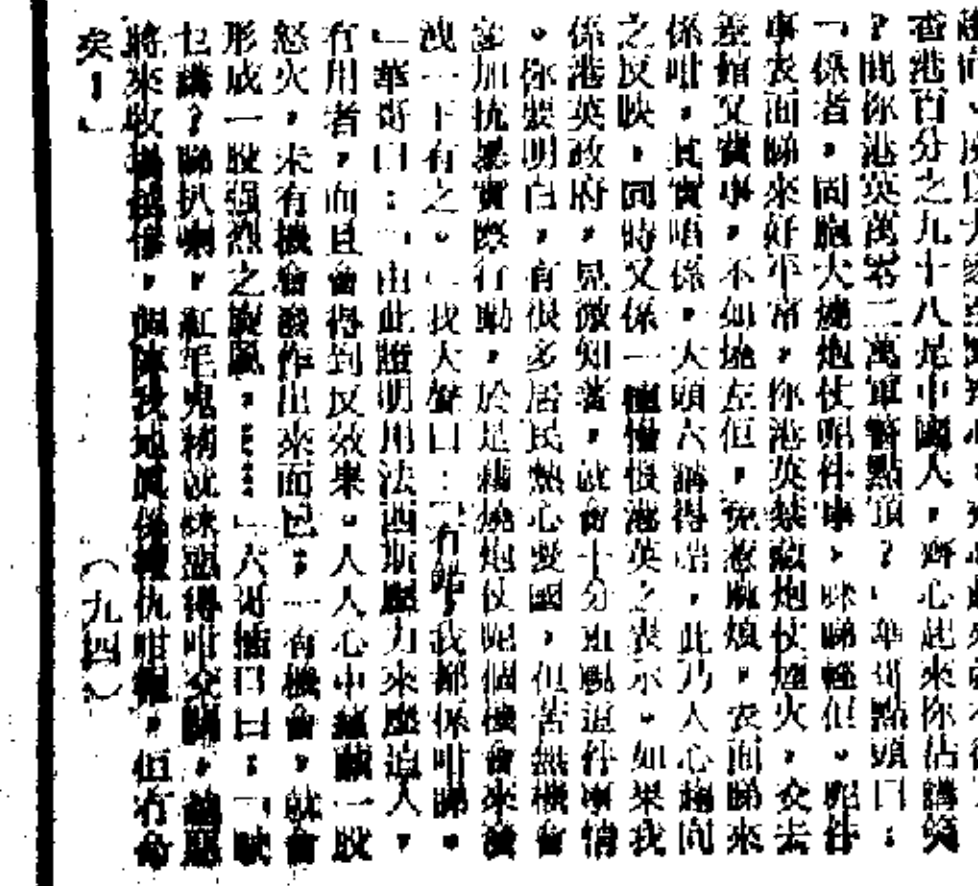 香港百分之九十八是中國人,齊心起來你估講笑
?問你港英萬零二萬軍警點頂?」華哥點頭曰:
「係者,同胞大燒炮仗呢件事,咪睇輕佢。呢件
事表面睇來好平常,你港英禁藏炮仗煙火,交去
差館又實事,不如燒左佢,免惹麻煩,表面睇來
係咁,其實唔係,大頭六講得啱,此乃人心趨向
之反映,同時又係一種憎恨港英之表示。如果我
係港英政府,見微知著,就會十分重視這件事情
。你要明白,有很多居民熱心愛國,但苦無機會
參加抗暴實際行動,於是藉燒炮仗呢個機會來發
洩一下有之。」我大聲曰:「有咋,我都係咁睇。
」華哥曰:「由此證明用法西斯壓力來壓迫人,
冇用者,而且會得到反效果。人人心中蘊藏一股
怒火,未有機會發作出來而已,一有機會,就會
形成一股强烈之旋風,……」六哥插口曰:「駛
乜講?睇扒喇,紅毛鬼得咁交關,越惡
將來收場越慘,我地真係仇咁報,但冇命
矣!」(九四)